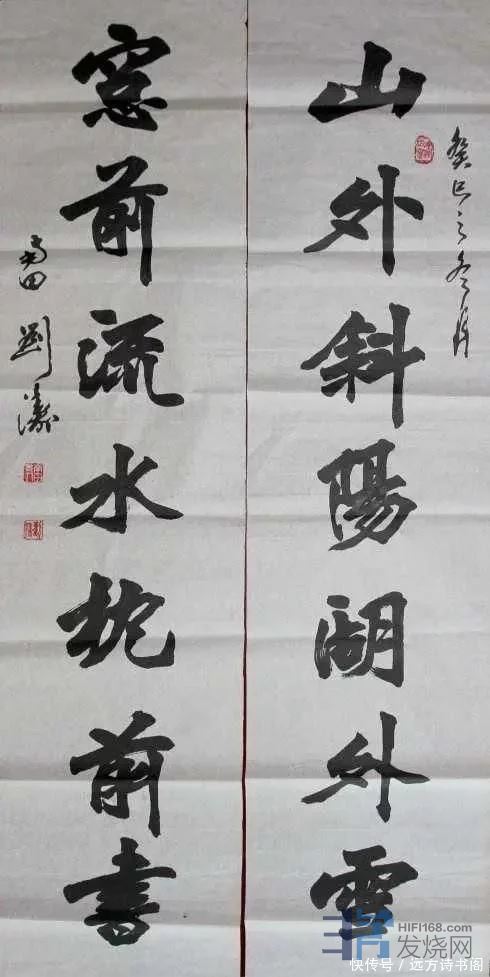 山外斜陽湖外雪
癸巳之冬月
窓前流水枕前書
劉
HIFI168.com
发烧网
快传号 / 远方诗书阁